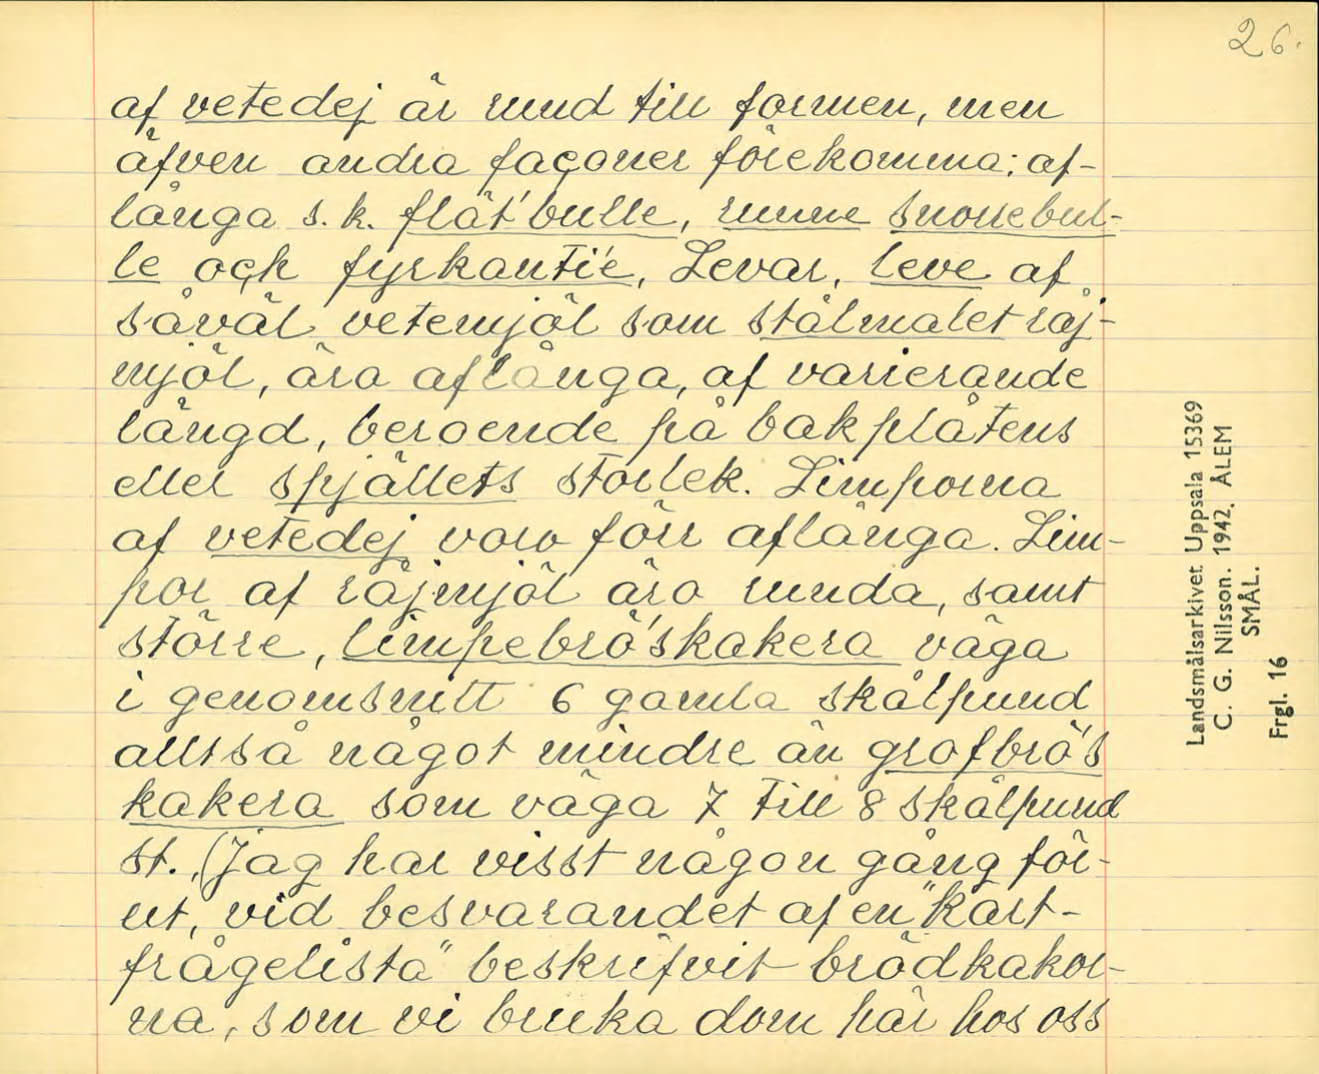 26.
af vetedej är rund till formen, men
äfven andra façoner förekomma: af-
långa s. k. flät'bulle, runne snorrebul-
le ock fyrkanti'e, Levar, leve af
såväl vetemjöl som stålmalet råj-
mjöl, ära aflånga, af varierande
längd, beroende på bakplåtens
eller spjällets storlek. Limporna
af vetedej voro förr aflånga. Lim-
por af råjmjöl ära runda, samt
större, limpebrö'skakera väga
i genomsnitt 6 gamla skålpund
alltså något mindre än grofbrö's
kakera som väga 7 till 8 skålpund
st. (Jag har visst någon gång för-
ut, vid besvarandet af en "kart-
frågelista" beskrifvit brödkakor-
na, som vi bruka dom här hos oss
Landsmålsarkivet Uppsala 15369
C. G. Nilsson. 1942. ÅLEM
SMÅL.
Frgl. 16